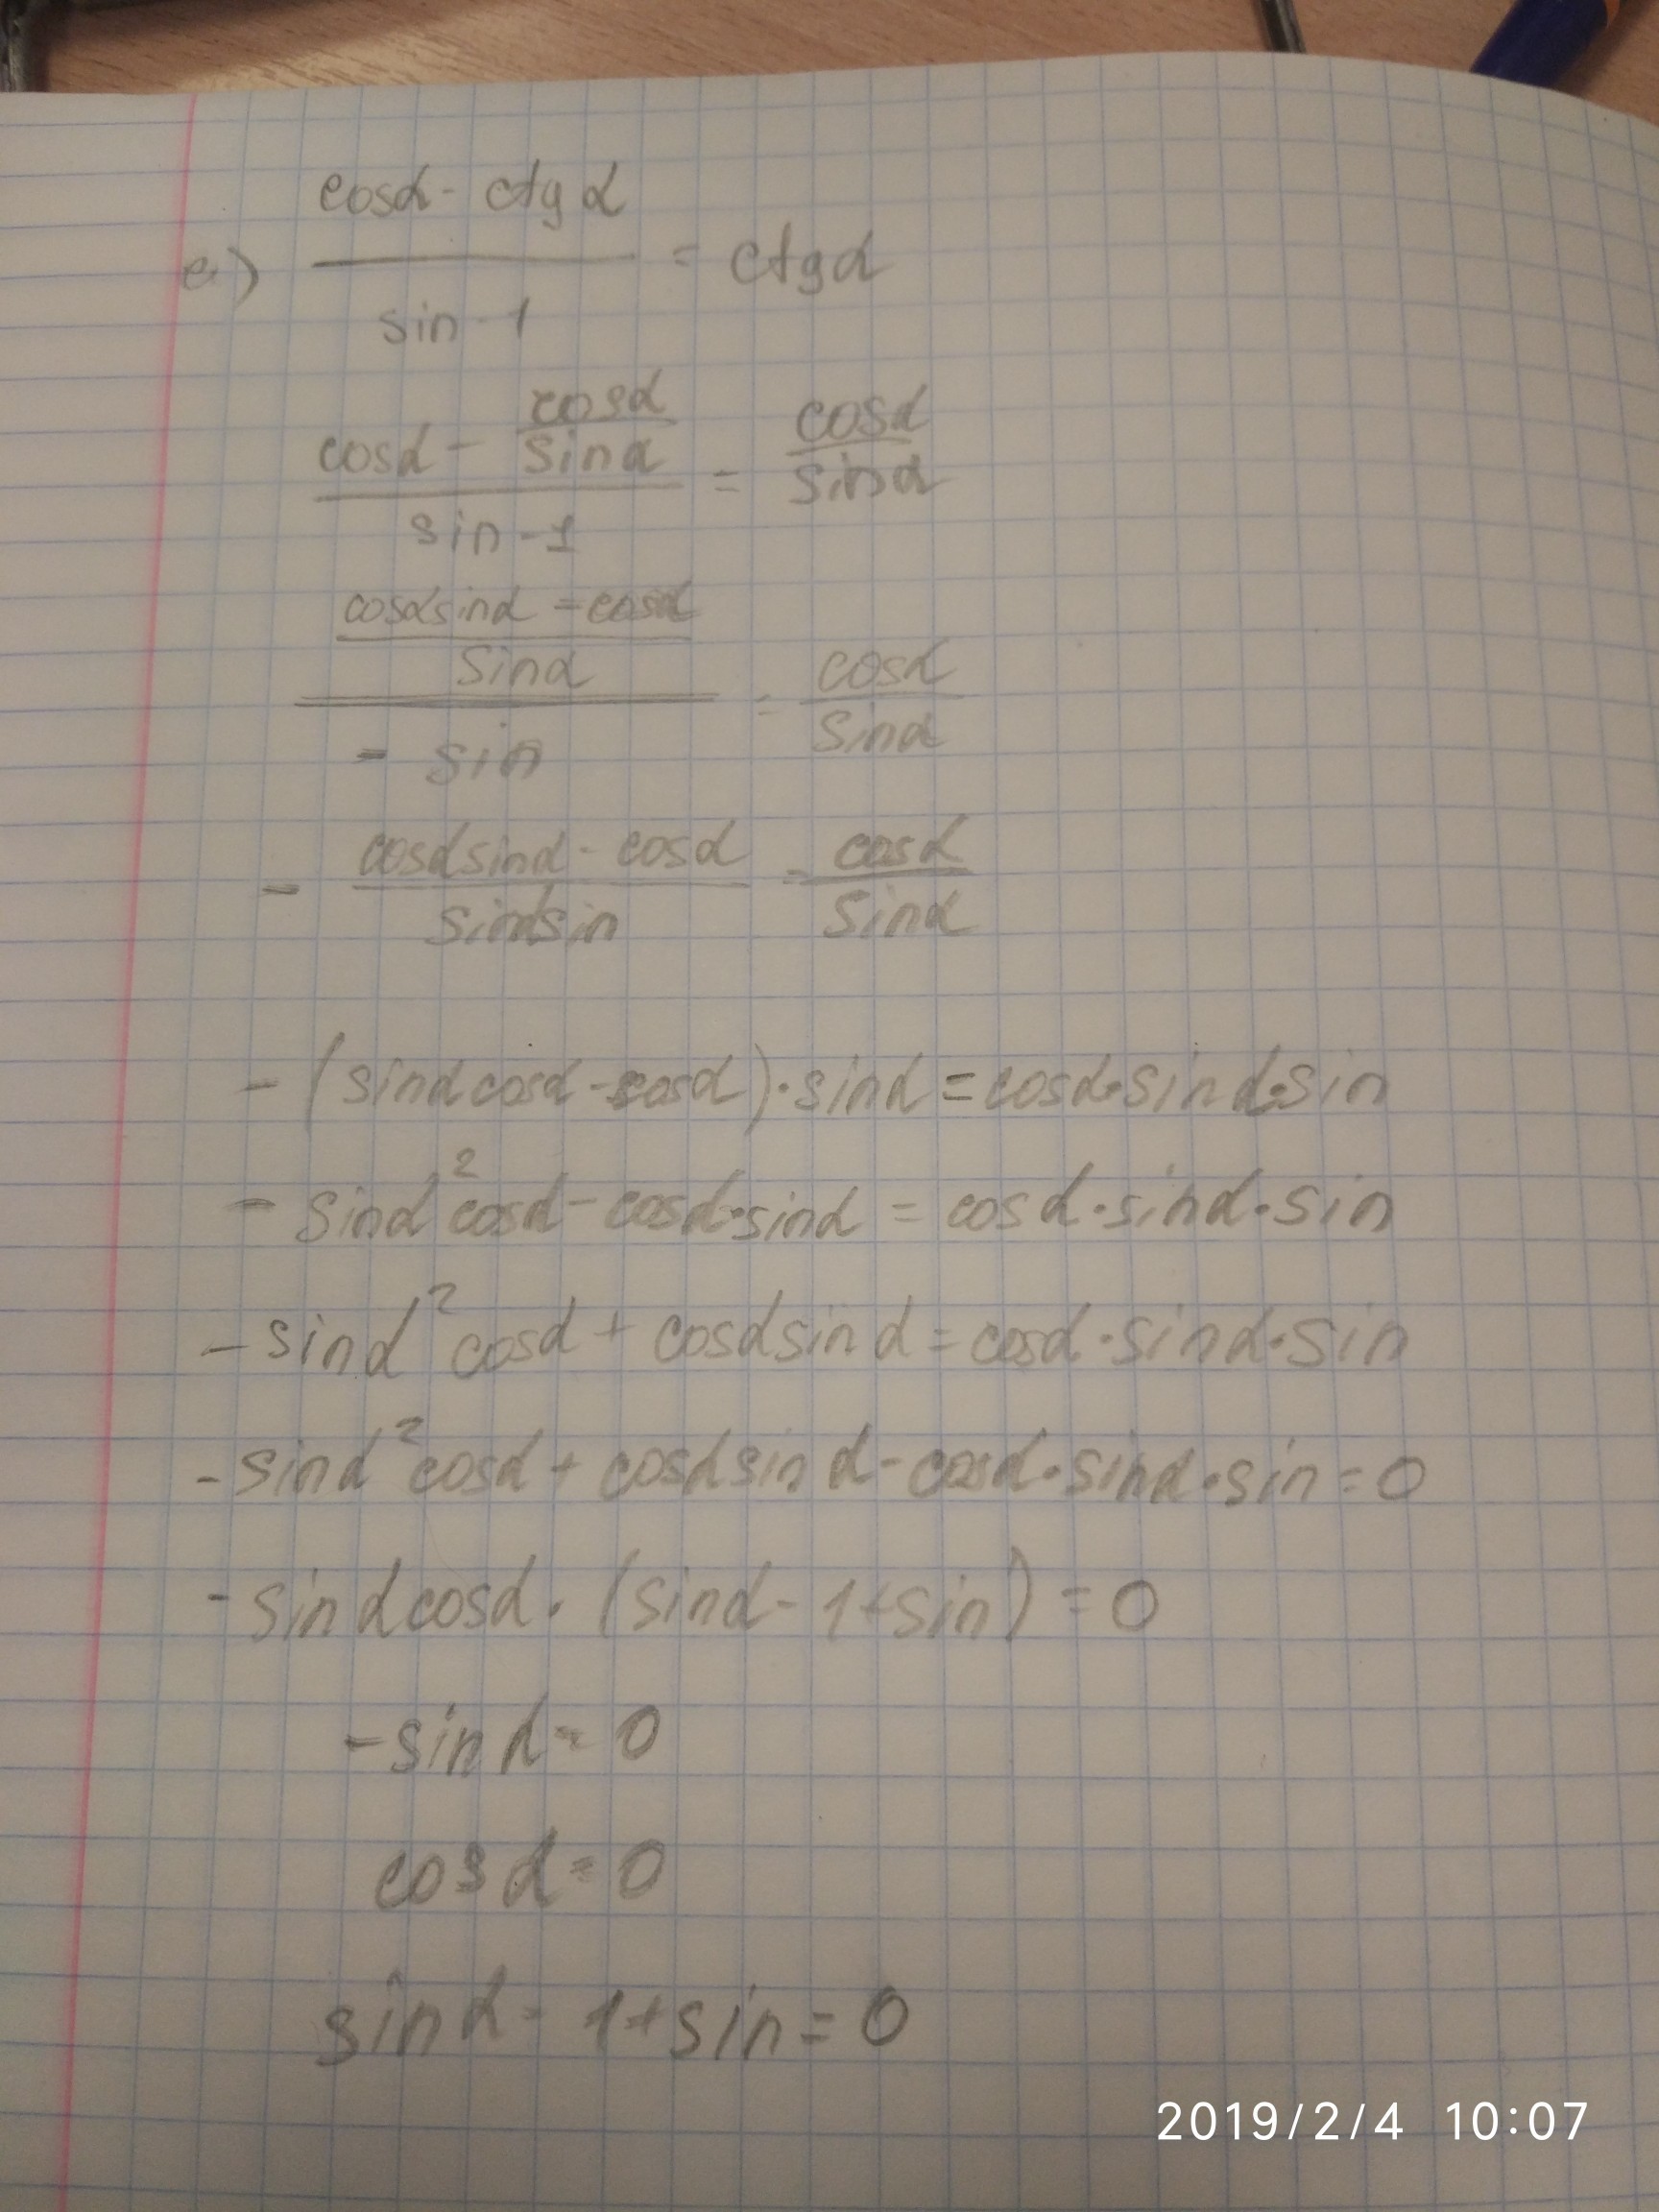 e) (cosα - ctgα)/(sin - 1) = ctgα
(cosα - cosα/sinα)/(sin - 1) = cosα/sinα
((cosαsinα = cosα)/sinα)/(- sin) = cosα/sinα
- (cosαsinα - cosα)/(sinαsin) = cosα/sinα
- (sinαcosα - cosα)·sinα = cosα·sinα·sin
- sinα²cosα - cosα·sinα = cosα·sinα·sin
- sinα²cosα + cosαsinα = cosα·sinα·sin
- sinα²cosα + cosαsinα - cosα·sinα·sin = 0
- sinαcosα·(sinα - 1 + sin) = 0
- sinα = 0
cosα = 0
sinα - 1 + sin = 0
2019/2/4 10:07